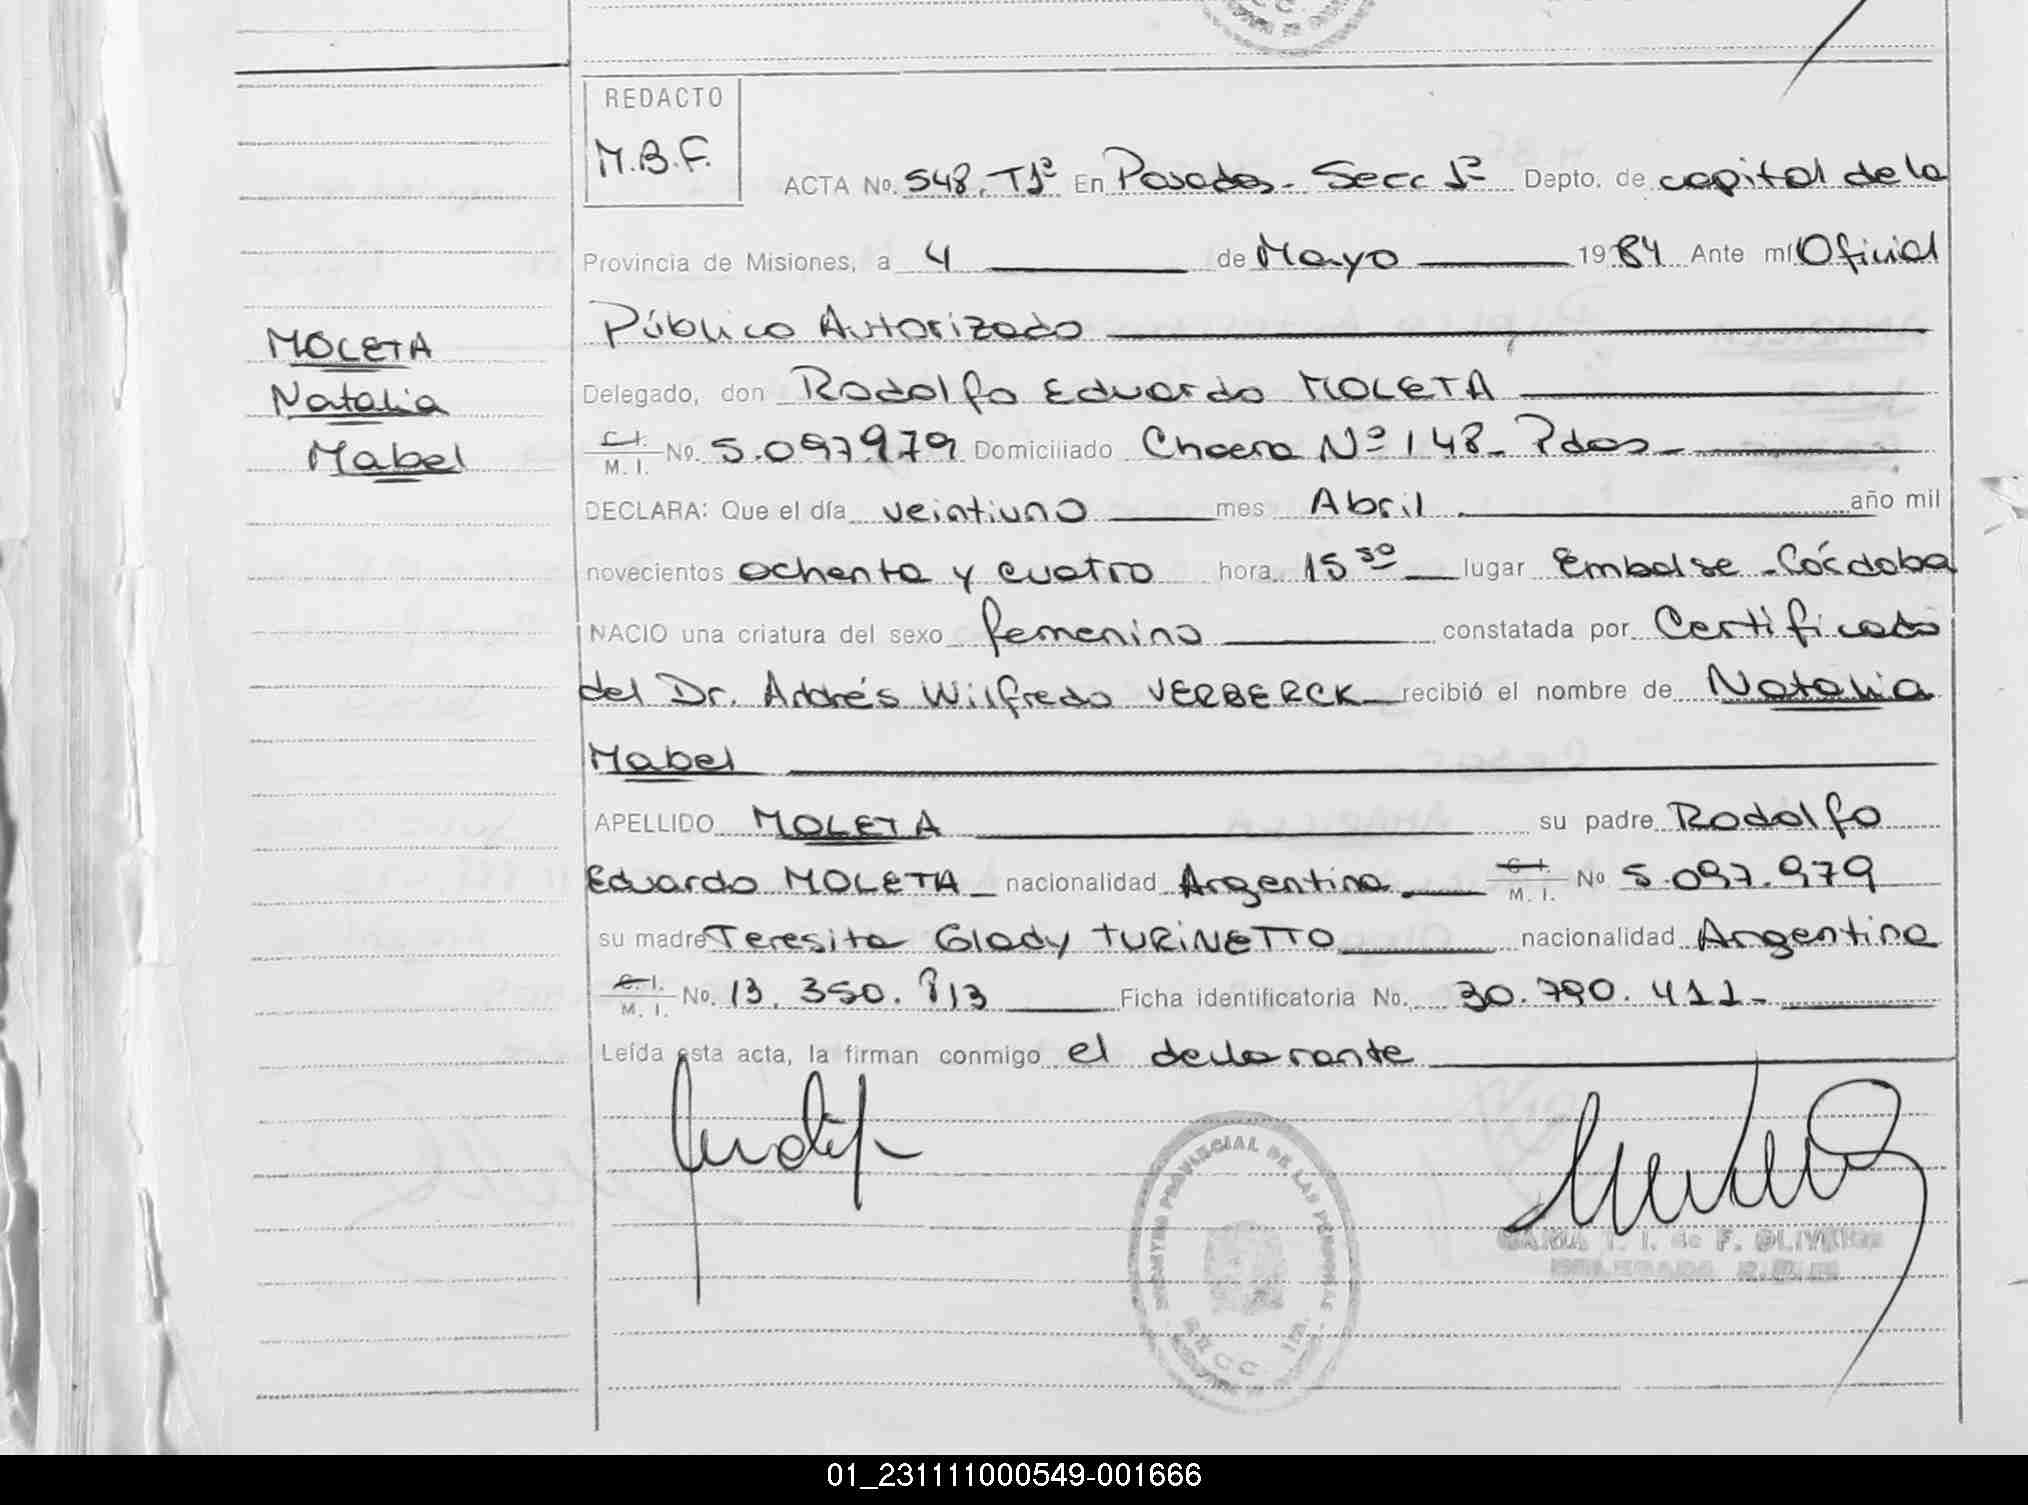 REDACTO
M.B.F.
ACTA No. 548. T1º En Posadas - Secc 1ª Depto. de capital de la
Provincia de Misiones, a 4 de Mayo 1984 Ante mí Oficial
Público Autorizado
Delegado, don Rodolfo Eduardo MOLETA
C.I. M.I. No. 5.097.979 Domiciliado Chacra Nº 148 - Pdas -
DECLARA: Que el día veintiuno mes Abril año mil
novecientos ochenta y cuatro hora 15 30 lugar Embalse - Córdoba
NACIO una criatura del sexo femenino constatada por Certificado
del Dr. Andrés Wilfredo VERBERCK recibió el nombre de Natalia
Mabel
APELLIDO MOLETA su padre Rodolfo
Eduardo MOLETA nacionalidad Argentina. C.I. M.I. No 5.097.979
su madre Teresita Glady TURINETTO nacionalidad Argentina
C.I. M.I. No. 13.350.813 Ficha identificatoria No. 30.790.411-
Leída esta acta, la firman conmigo el declarante
MOLETA
Natalia
Mabel
PROVINCIAL DE LAS PERSONAS
SECC. 1ra.
MARIA T. I. de F. OLIVEIRA
01_231111000549-001666